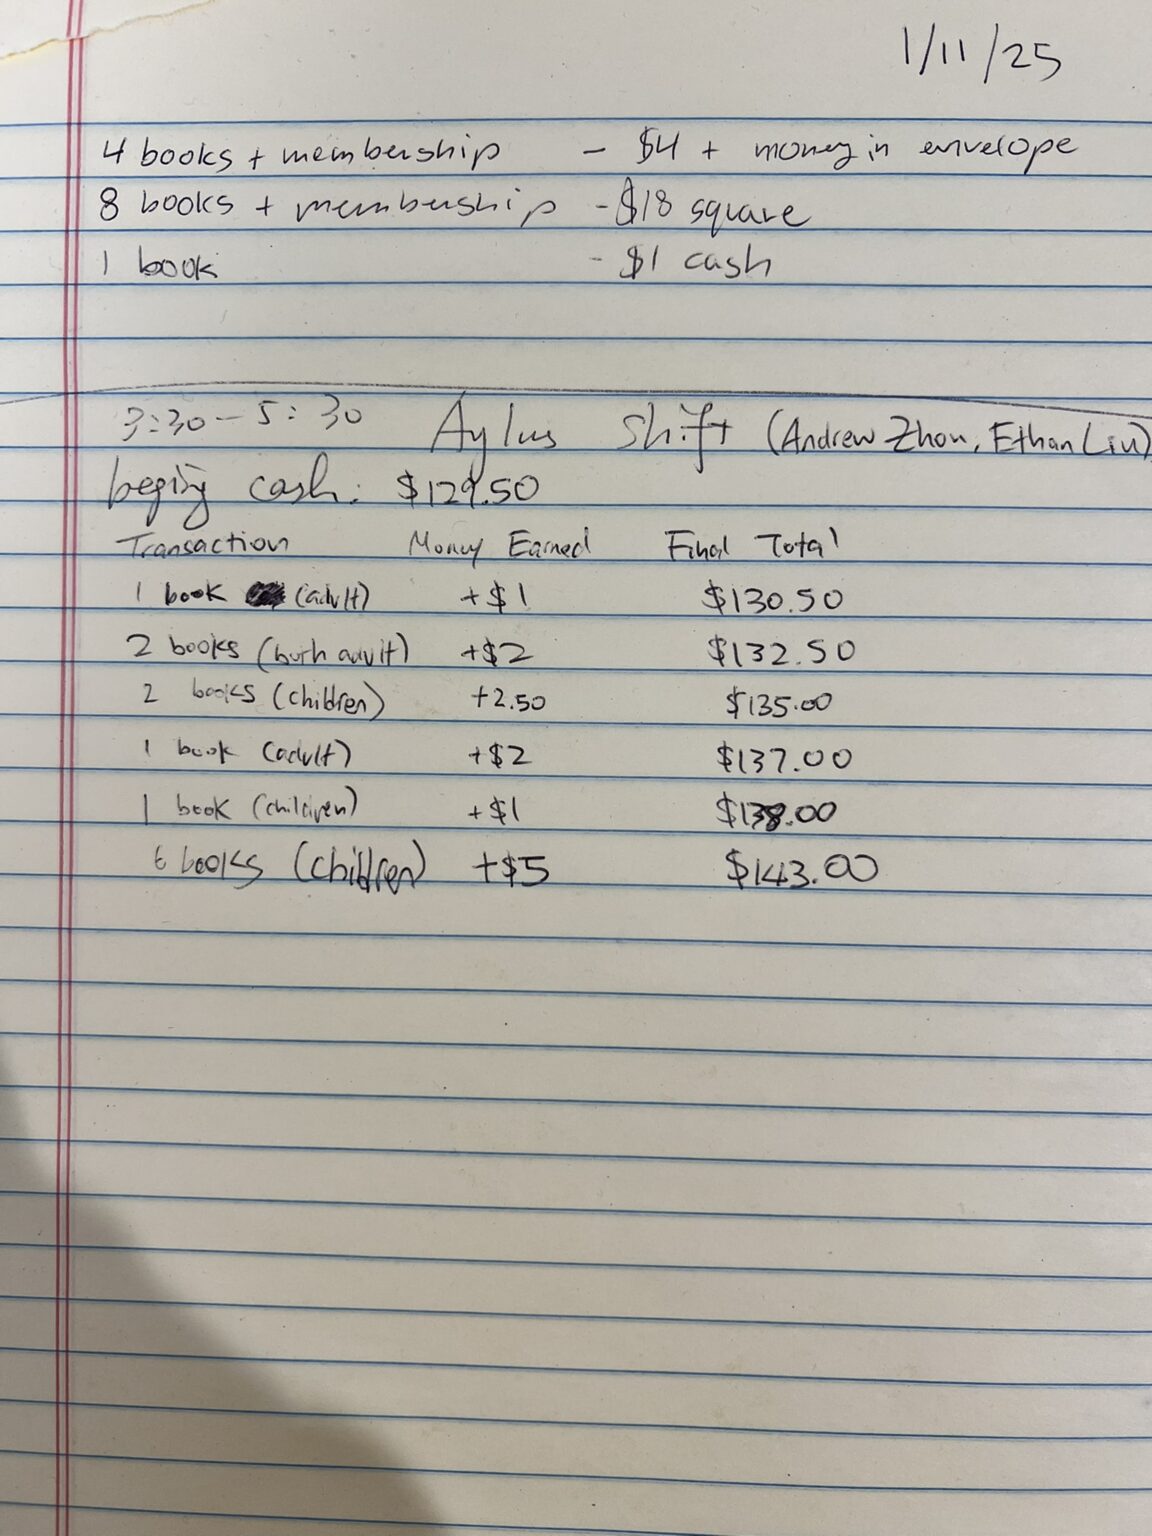 1/11/25
4 books + membership - $4 + money in envelope
8 books + membership - $18 square
1 book - $1 cash
3:30-5:30 Aylus Shift (Andrew Zhou, Ethan Liu)
begining cash: $129.50
Transaction Money Earned Final Total
1 book (adult) +$1 $130.50
2 books (both adult) +$2 $132.50
2 books (children) +2.50 $135.00
1 book (adult) +$2 $137.00
1 book (children) +$1 $138.00
6 books (children) +$5 $143.00